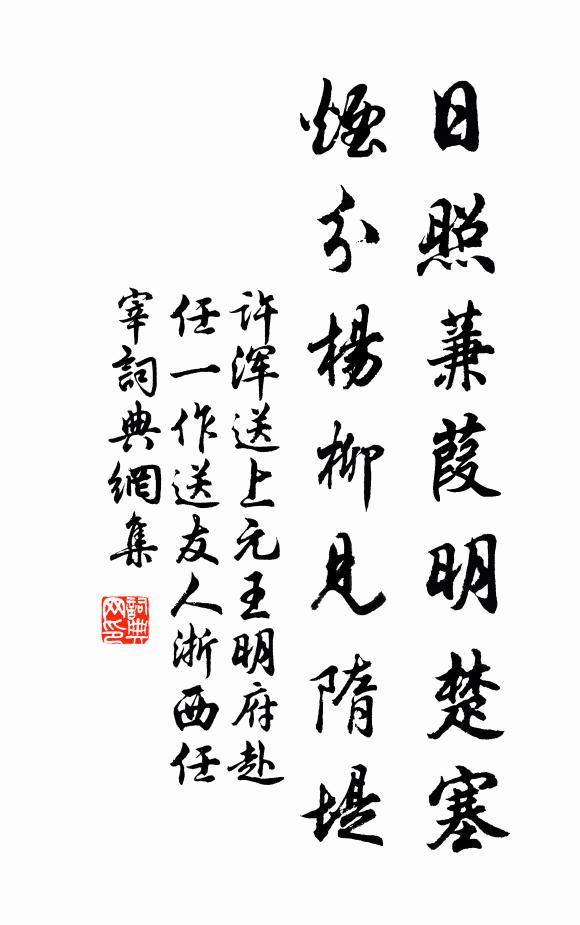 日照蒹葭明楚塞
煙分楊柳見隋堤
許渾送上元王明府赴
任一作送友人浙西任
宰詞典網集
詞典網印